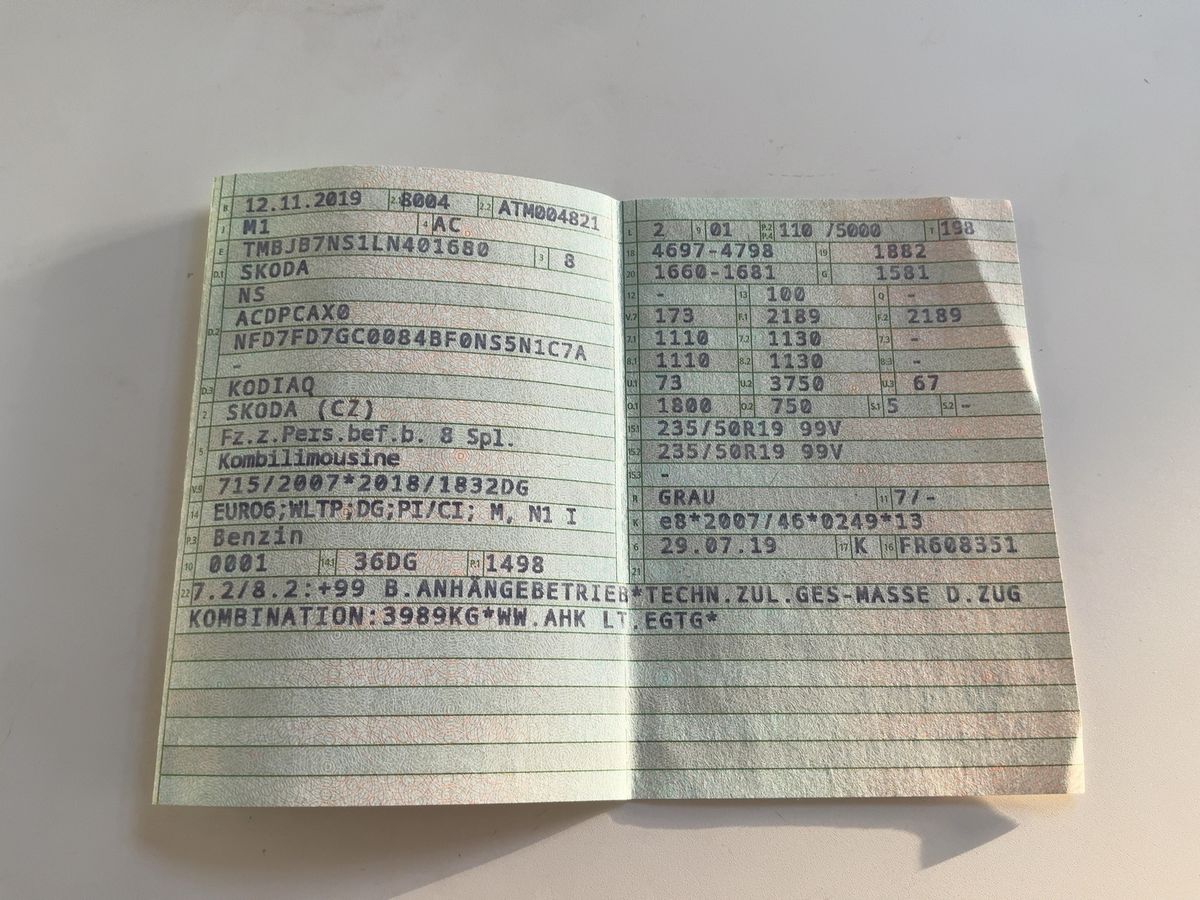 B 12.11.2019 2.1 8004 2.2 ATM004821
J M1 4 AC
E TMBJB7NS1LN401680 3 8
D.1 SKODA
NS
D.2 ACDPCAX0
NFD7FD7GC0084BF0NS5N1C7A
-
D.3 KODIAQ
2 SKODA (CZ)
5 Fz.z.Pers.bef.b. 8 Spl.
Kombilimousine
V.9 715/2007*2018/1832DG
14 EURO6;WLTP;DG;PI/CI; M, N1 I
P.3 Benzin
10 0001 14.1 36DG P.1 1498
L 2 9 01 P.2 P.4 110 /5000 T 198
18 4697-4798 19 1882
20 1660-1681 G 1581
12 - 13 100 Q -
V.7 173 F.1 2189 F.2 2189
7.1 1110 7.2 1130 7.3 -
8.1 1110 8.2 1130 8.3 -
U.1 73 U.2 3750 U.3 67
O.1 1800 O.2 750 S.1 5 S.2 -
15.1 235/50R19 99V
15.2 235/50R19 99V
15.3 -
R GRAU 11 7/-
K e8*2007/46*0249*13
6 29.07.19 17 K 16 FR608351
21
22 7.2/8.2:+99 B.ANHÄNGEBETRIEB*TECHN.ZUL.GES-MASSE D.ZUG
KOMBINATION:3989KG*WW.AHK LT.EGTG*